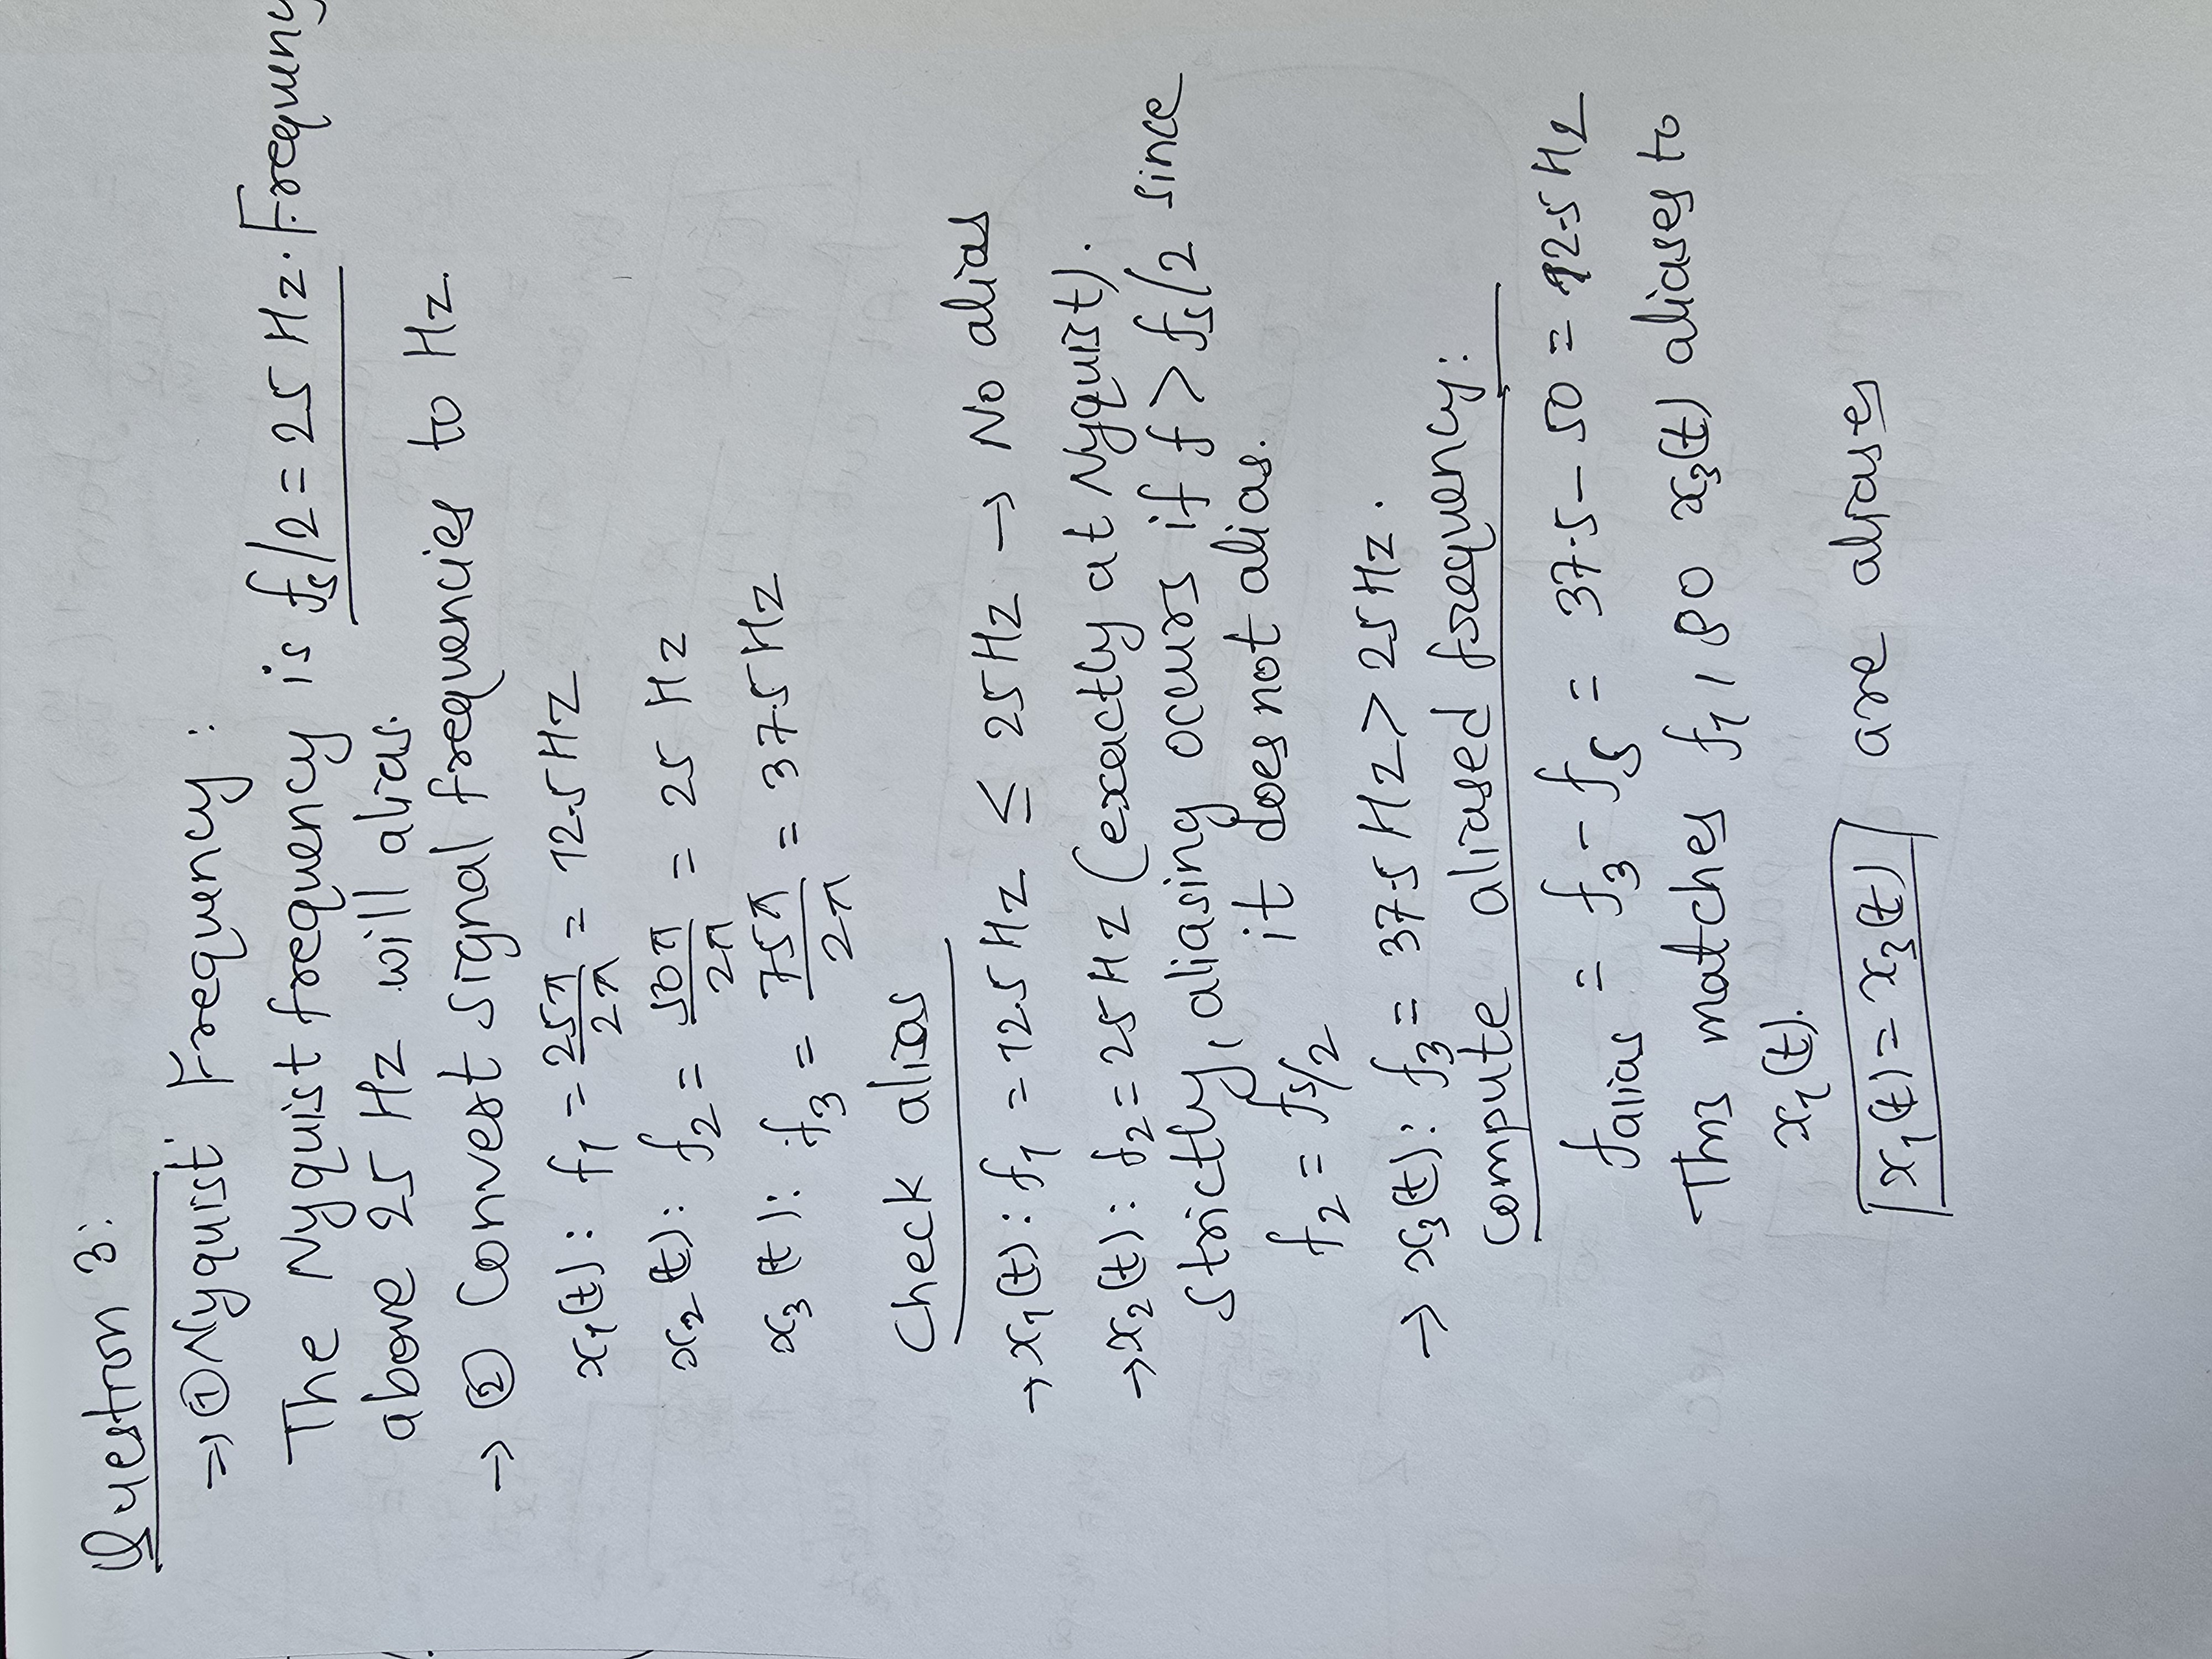 Question 3:
⇒ ① Nyquist Frequency:
The Nyquist frequency is fs/2 = 25 Hz. Frequeny
above 25 Hz will alias.
→ ② Convert signal frequencies to Hz.
x₁(t): f₁ = 25π/2π = 12.5 HZ
x₂(t): f₂ = 50π/2π = 25 Hz
x₃(t): f₃ = 75π/2π = 37.5 Hz
Check alias
→ x₁(t): f₁ = 12.5 Hz ≤ 25 Hz → No alias
→ x₂(t): f₂ = 25 Hz (exactly at Nyquist).
Strictly, aliasing occurs if f > fs/2 since
f₂ = fs/2 it does not alias.
→ x₃(t): f₃ = 37.5 Hz > 25 Hz.
compute aliased frequency:
falias = f₃ - fs = 37.5 - 50 = 12.5 Hz
This matches f₁, so x₃(t) aliases to
x₁(t).
x₁(t) = x₃(t) are aliases